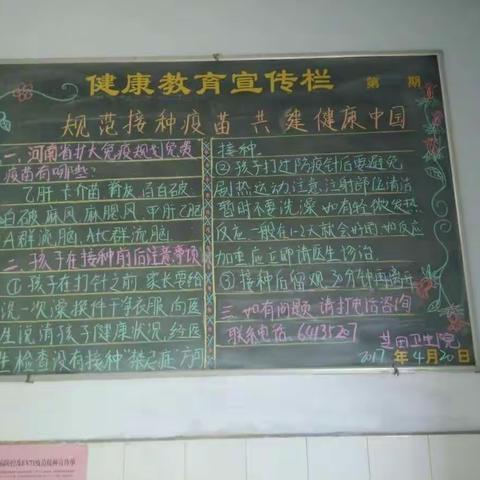 健康教育宣传栏 第 期
规范接种疫苗 共建健康中国
一、河南省扩大免疫规划免费
疫苗有哪些?
乙肝 卡介苗 脊灰 百白破
白破 麻风 麻腮风 甲肝 乙脑
A群流脑、A+C群流脑
二、孩子在接种前后注意事项
①孩子在打针之前 家长要给
洗一次澡 换件干净衣服 向医
生说清孩子健康状况 经医
生检查没有接种"禁忌症"方可
接种
②孩子打过防疫针后要避免
剧烈运动 注意注射部位清洁
暂时不要洗澡 如有轻微发热
反应一般在1-2天就会好的 如反应
加重应立即请医生诊治
③接种后留观30分钟再离开
三、如有问题 请打电话咨询
联系电话:
芝田卫生院
2017年4月20日